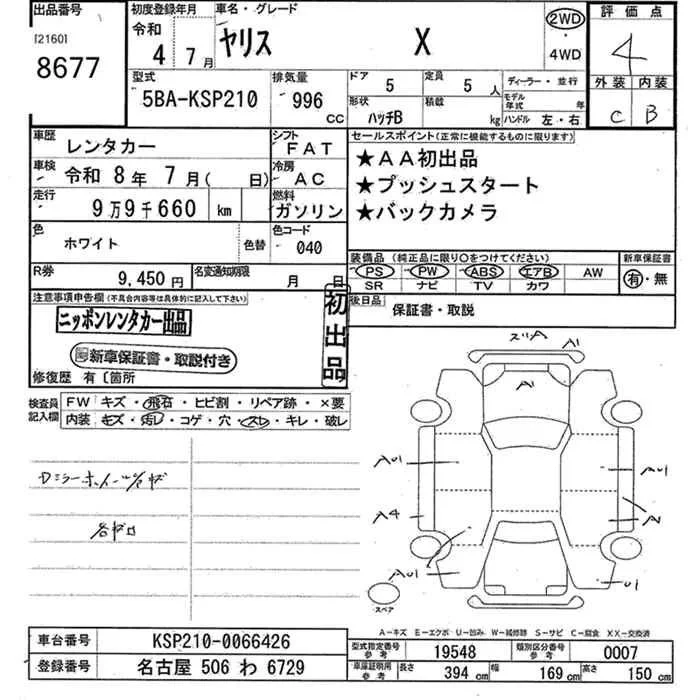 出品番号
[2160]
8677
初度登録年月
令和
4年 7月
車名・グレード
ヤリス X
2WD
・
4WD
評価点
4
外装 内装
C B
型式
5BA-KSP210
排気量
996
CC
ドア 5
定員 5 人
形状 ハッチB
積載 kg
ディーラー・並行
モデル年式 年
ハンドル 左・右
車歴 レンタカー
シフト FAT
車検 令和 8年 7月( 日)
冷房 AC
走行 9万9千660 km
燃料 ガソリン
色 ホワイト 色替
色コード 040
R券 9,450円
名変通知期限 月 日
セールスポイント(正常に機能するものに限ります)
★AA初出品
★プッシュスタート
★バックカメラ
装備品 (純正品に限り○をつけてください)
PS PW ABS エアB AW
SR ナビ TV カワ
新車保証書
有・無
後日品
保証書・取説
注意事項申告欄(不具合内容等は具体的に記入して下さい)
ニッポンレンタカー出品
新車保証書・取説付き
初出品
修復歴 有〔箇所
検査員記入欄
FW キズ・飛石・ヒビ割・リペア跡・×要
内装 キズ・汚レ・コゲ・穴・スレ・キレ・破レ
スリA
A1
A1
AU1
AU1
A4
A
AU1
U1
スペア
A−キズ E−エクボ U−凹み W−補修跡 S−サビ C−腐食 XX−交換済
車台番号 KSP210-0066426
登録番号 名古屋 506 わ 6729
型式指定番号 参考 19548
類別区分番号 参考 0007
車庫証明用 参考 長さ 394 cm 幅 169 cm 高さ 150 cm